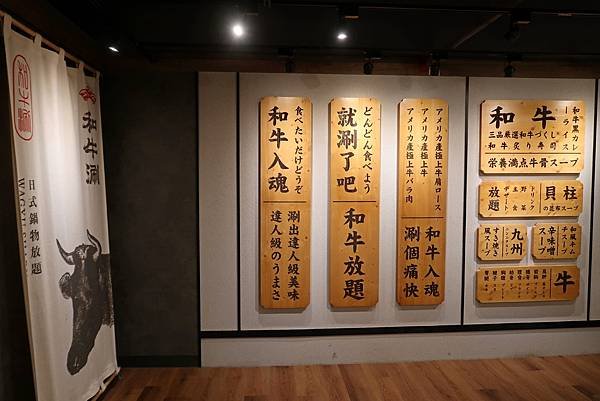 和牛涮
日式鍋物放題
WAGYU SHABU
食べたいだけどうぞ
和牛入魂
涮出達人級美味
達人級のうまさ
どんどん食べよう
就涮了吧
和牛放題
アメリカ産極上牛肩ロース
アメリカ産極上牛
アメリカ産極上牛バラ肉
和牛入魂
涮個痛快
和牛
和牛黒カレーライス
三品厳選和牛づくし
和牛炙り寿司
栄養満点牛骨スープ
放題
ドリンク
野菜
主食
デザート
貝柱
の昆布スープ
九州
すき焼き
風スープ
辛味噌
スープ
和風キムチスープ
牛